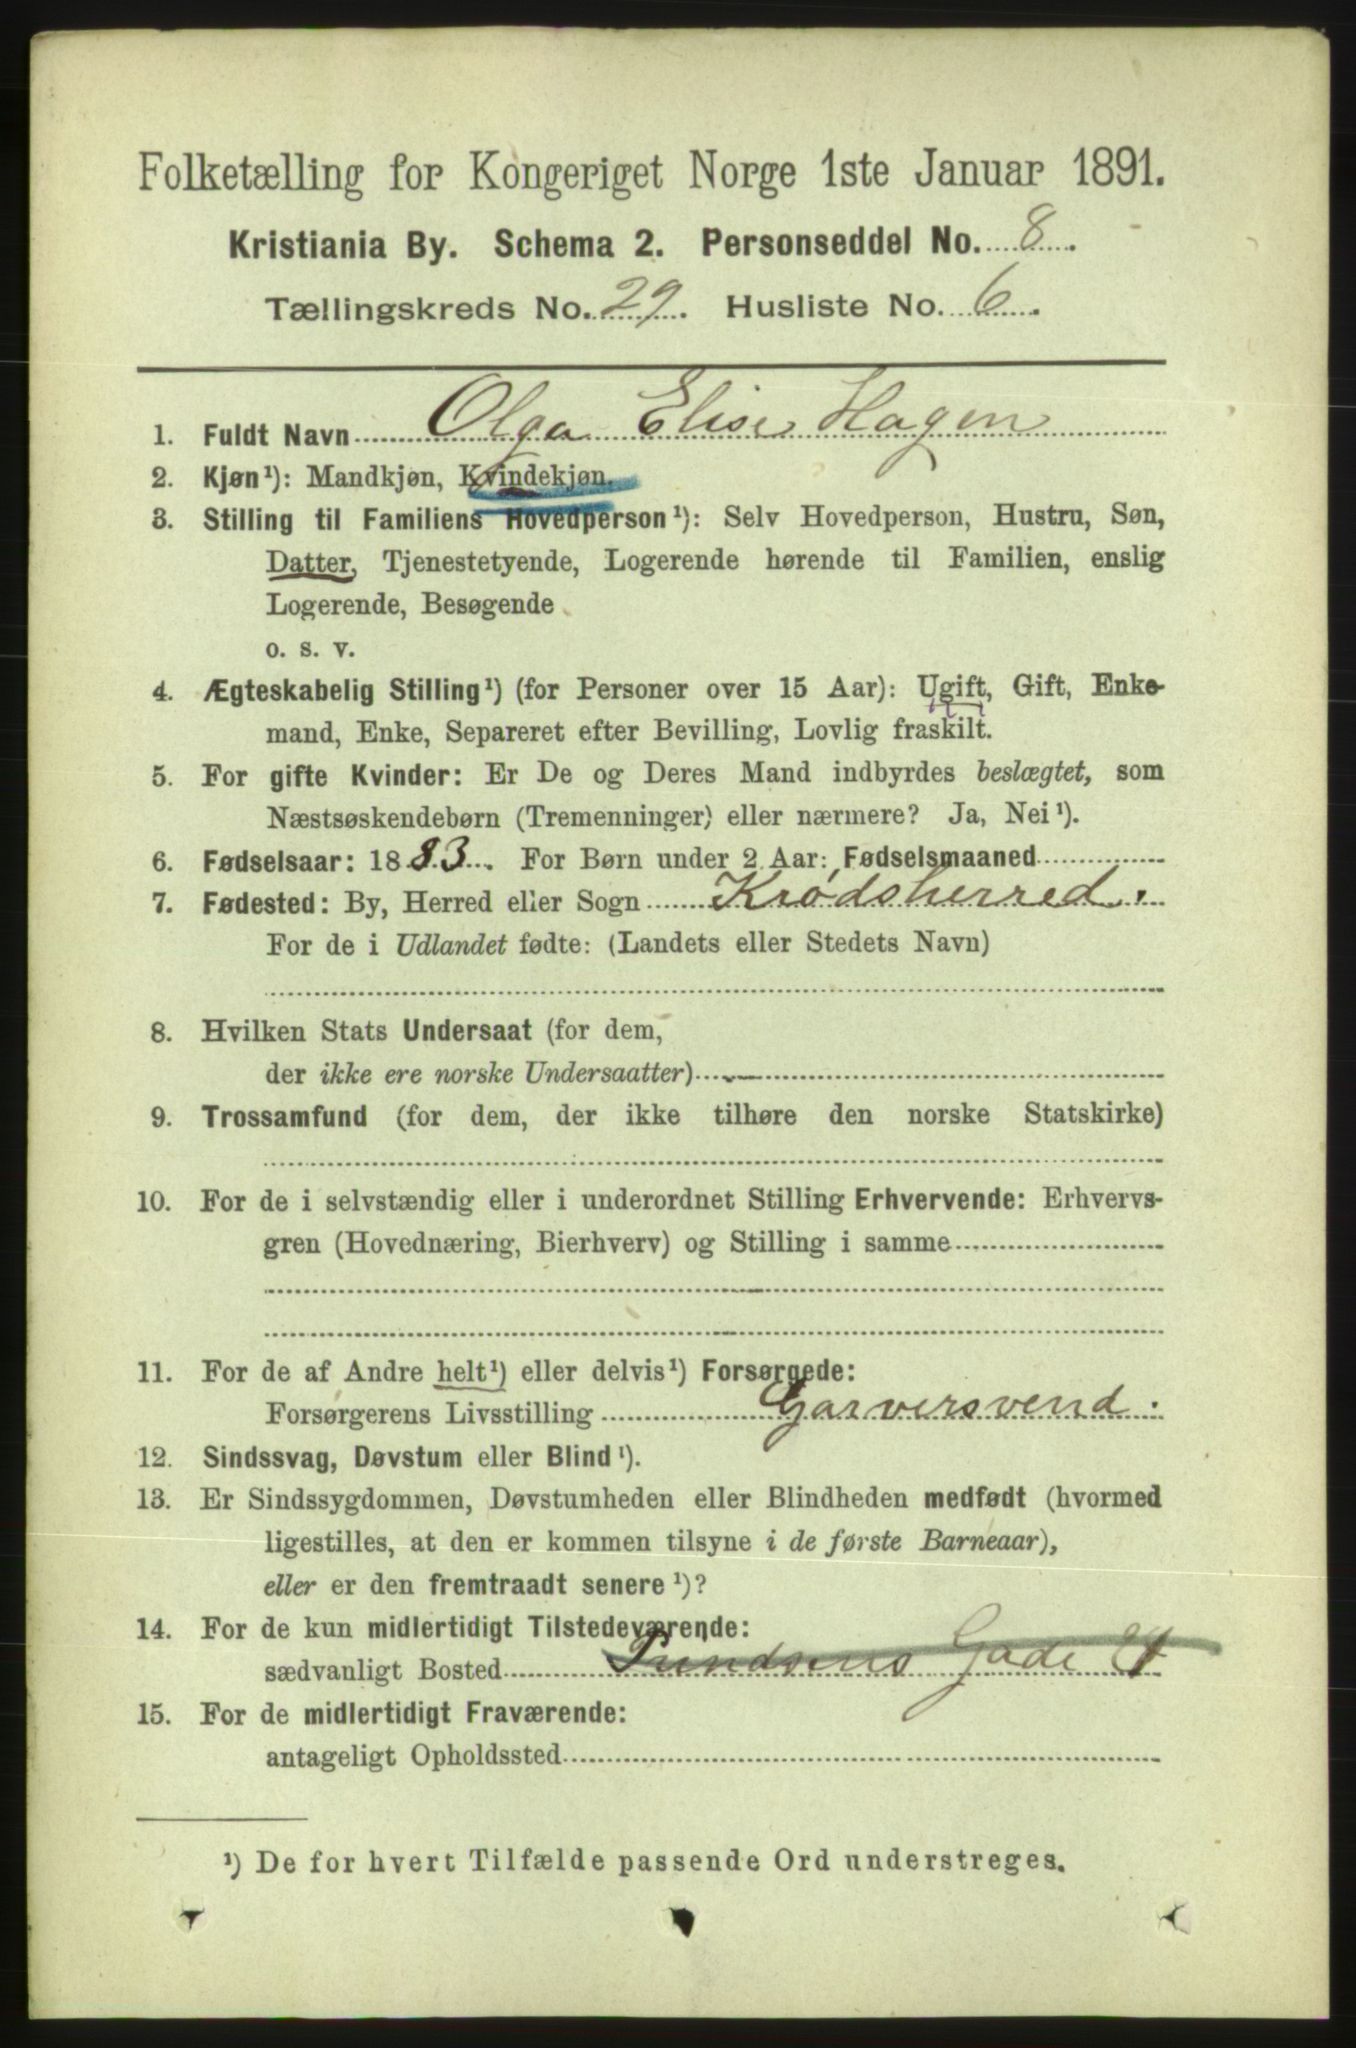 Folketælling for Kongeriget Norge 1ste Januar 1891.
Kristiania By. Schema 2. Personseddel No. 8.
Tællingskreds No. 29. Husliste No. 6.
1. Fuldt Navn Olga Elise Hagen
2. Kjøn¹): Mandkjøn, Kvindekjøn.
3. Stilling til Familiens Hovedperson¹): Selv Hovedperson, Hustru, Søn,
Datter, Tjenestetyende, Logerende hørende til Familien, enslig
Logerende, Besøgende
o. s. v.
4. Ægteskabelig Stilling¹) (for Personer over 15 Aar): Ugift, Gift, Enke-
mand, Enke, Separeret efter Bevilling, Lovlig fraskilt.
5. For gifte Kvinder: Er De og Deres Mand indbyrdes beslægtet, som
Næstsøskendebørn (Tremenninger) eller nærmere? Ja, Nei¹).
6. Fødselsaar: 1883. For Børn under 2 Aar: Fødselsmaaned
7. Fødested: By, Herred eller Sogn Krødsherred.
For de i Udlandet fødte: (Landets eller Stedets Navn)
8. Hvilken Stats Undersaat (for dem,
der ikke ere norske Undersaatter)
9. Trossamfund (for dem, der ikke tilhøre den norske Statskirke)
10. For de i selvstændig eller i underordnet Stilling Erhvervende: Erhvervs-
gren (Hovednæring, Bierhverv) og Stilling i samme
11. For de af Andre helt¹) eller delvis¹) Forsørgede:
Forsørgerens Livsstilling Garversvend.
12. Sindssvag, Døvstum eller Blind¹).
13. Er Sindssygdommen, Døvstumheden eller Blindheden medfødt (hvormed
ligestilles, at den er kommen tilsyne i de første Barneaar),
eller er den fremtraadt senere¹)?
14. For de kun midlertidigt Tilstedeværende:
sædvanligt Bosted Gade
15. For de midlertidigt Fraværende:
antageligt Opholdssted
¹) De for hvert Tilfælde passende Ord understreges.